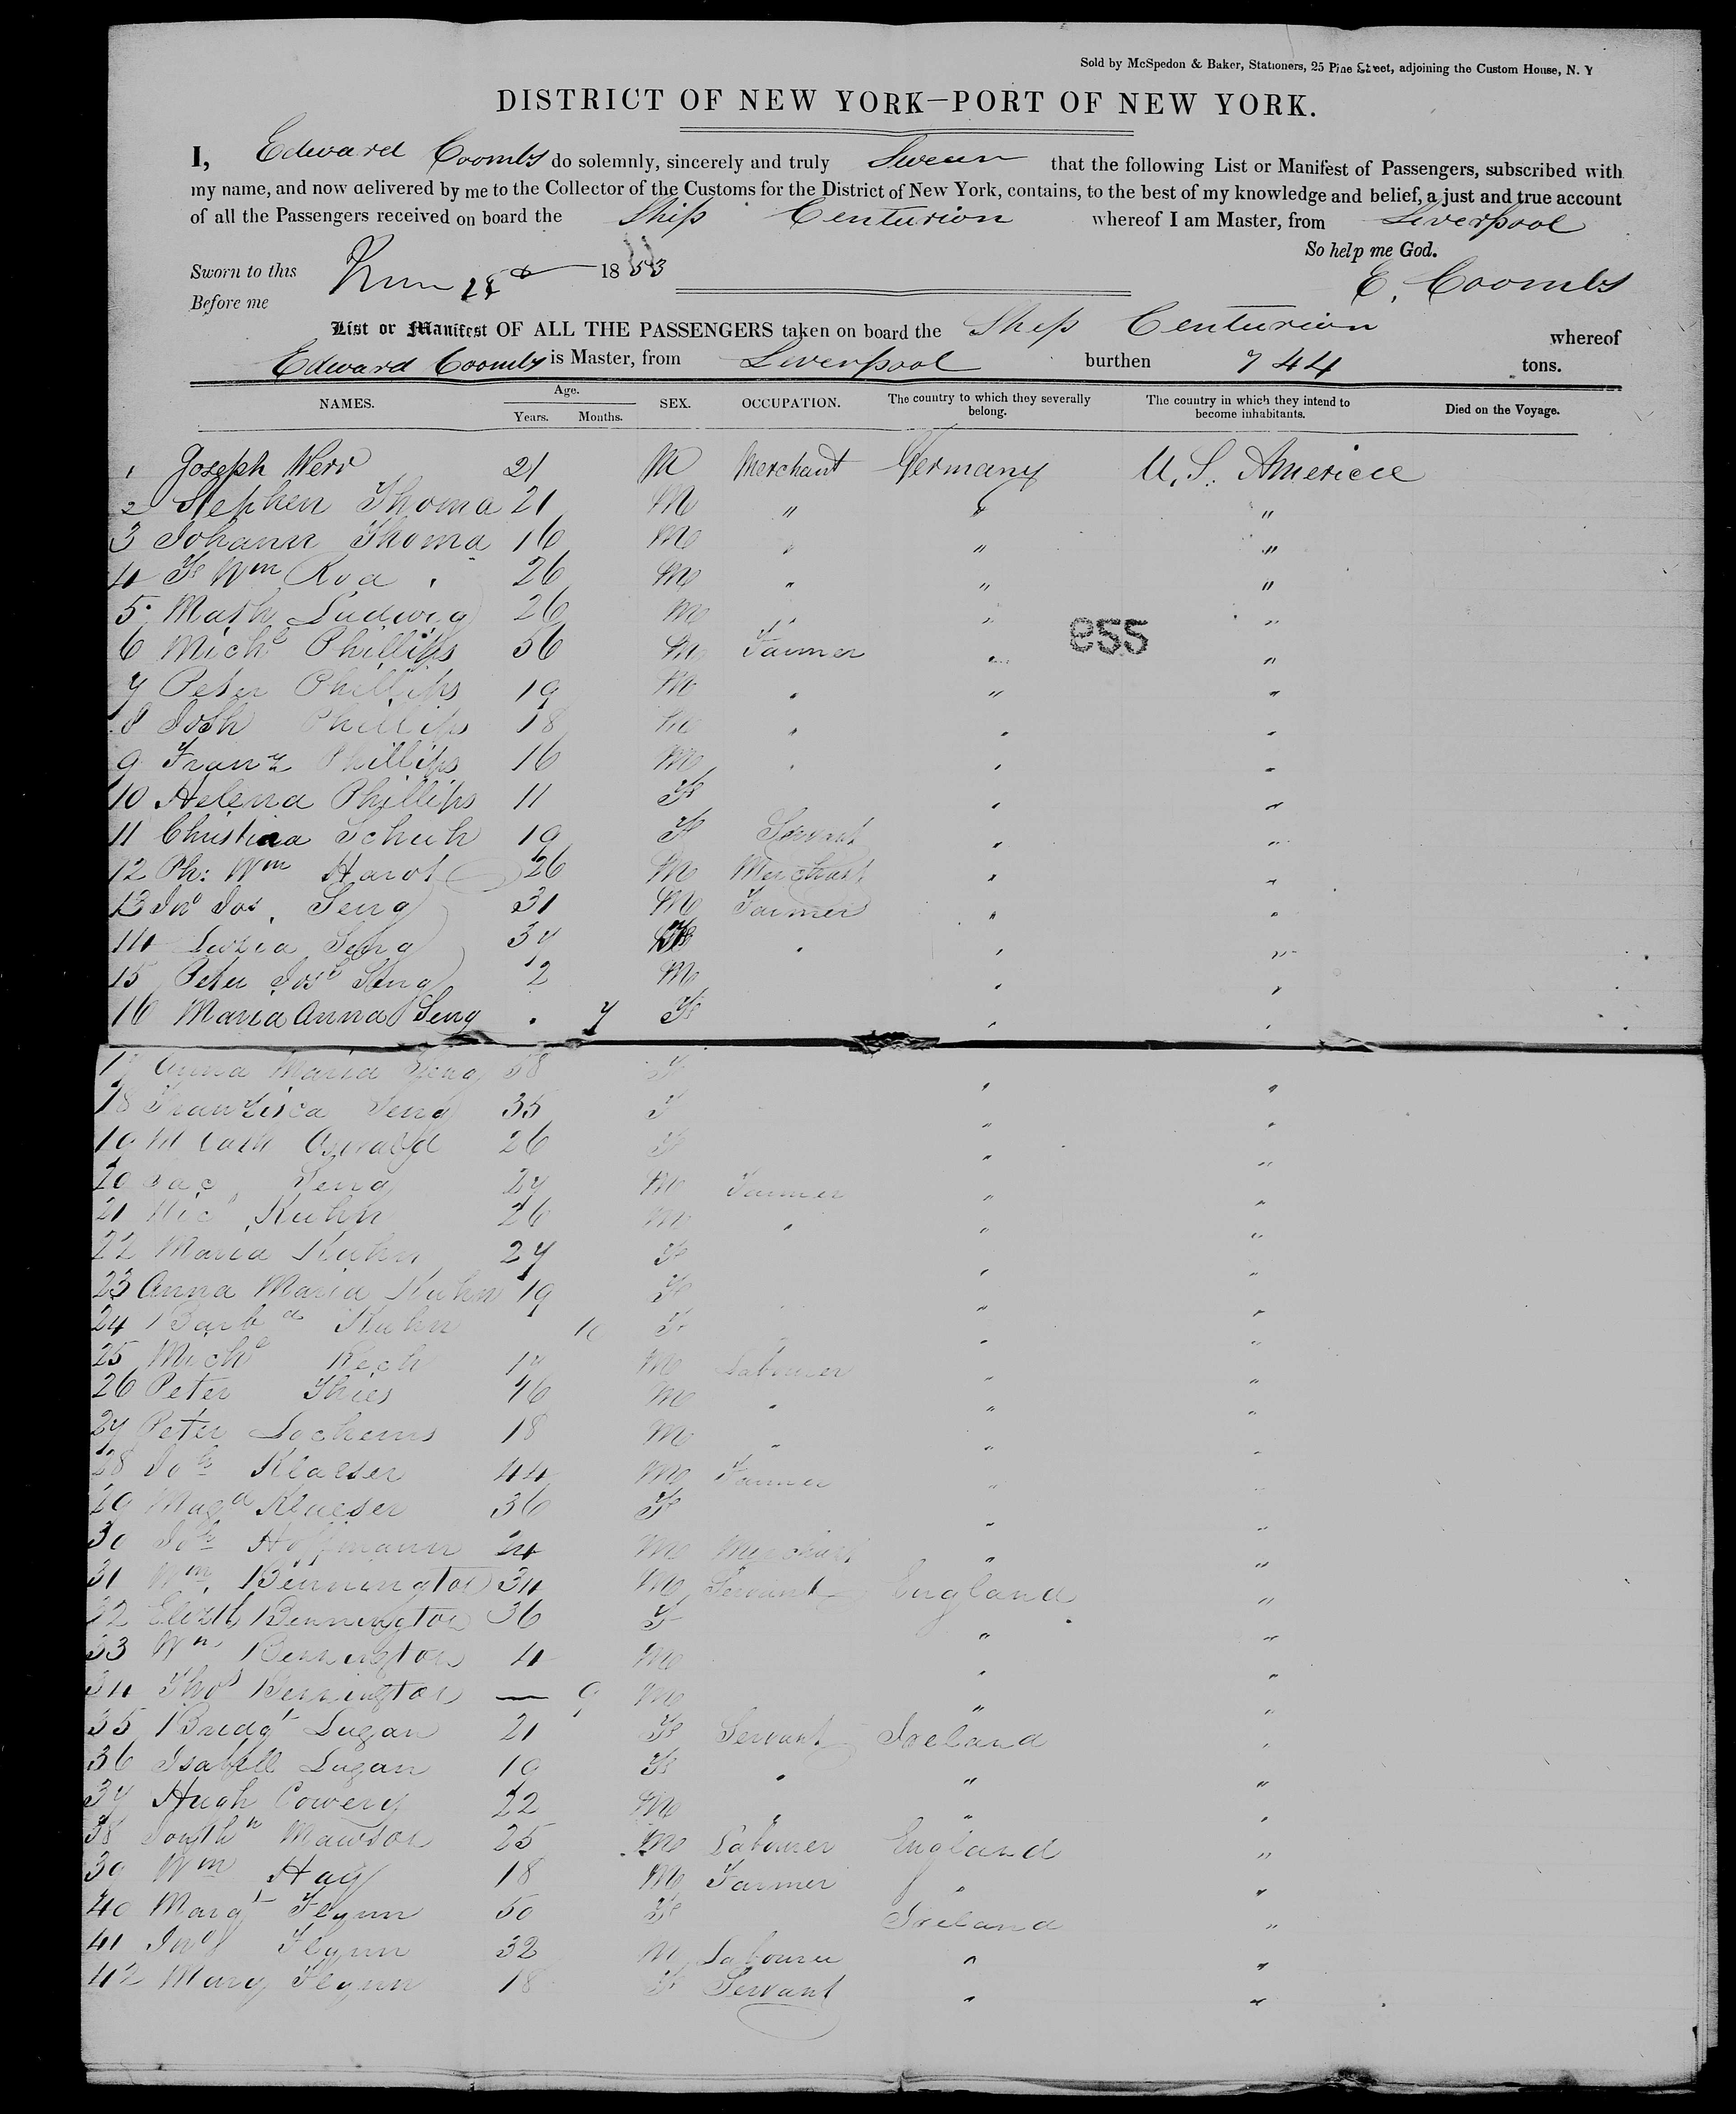 Sold by McSpedon & Baker, Stationers, 25 Pine Street, adjoining the Custom House, N. Y
DISTRICT OF NEW YORK—PORT OF NEW YORK.
I, Edward Coombs do solemnly, sincerely and truly Swear that the following List or Manifest of Passengers, subscribed with
my name, and now delivered by me to the Collector of the Customs for the District of New York, contains, to the best of my knowledge and belief, a just and true account
of all the Passengers received on board the Ship Centurion whereof I am Master, from Liverpool
So help me God.
Sworn to this 1853
E. Coombs
Before me
List or Manifest OF ALL THE PASSENGERS taken on board the Ship Centurion whereof
Edward Coombs is Master, from Liverpool burthen 744 tons.
NAMES. Age. Years. Months. SEX. OCCUPATION. The country to which they severally belong. The country in which they intend to become inhabitants. Died on the Voyage.
1 Joseph 21 M Merchant Germany U. S. America
2 Stephen Thoma 21 M " " "
3 Johann Thoma 16 M " " "
4 Wm 26 M " " "
5 Math Ludwig 26 M " " "
6 Michl Phillips 56 M Farmer " "
855
7 Peter Phillips 19 M " " "
8 Josh Phillips 18 M " " "
9 Franz Phillips 16 M " " "
10 Helena Phillips 11 F " "
11 Christina Schuh 19 F Servant " "
12 Ph: Wm 26 M Merchant " "
13 Jno Jos. Seng 31 M Farmer " "
14 Luzia Seng 37 F " " "
15 Peter Josh Seng 2 M " "
16 Maria Anna Seng . 7 F " "
17 Anna Maria Seng 58 F " "
18 Franzisca Seng 35 F " "
19 M Cath Oswald 26 F " "
20 Jac Seng 27 M Farmer " "
21 Nics Kuhn 26 M " " "
22 Maria Kuhn 27 F " "
23 Anna Maria Kuhn 19 F " "
24 Barba Kuhn 10 F " "
25 Michl 17 M Labourer " "
26 Peter Thies 46 M " " "
27 Peter Lochems 18 M " " "
28 Joh Klaeser 44 M Farmer " "
29 Magd Klaeser 36 F " "
30 Joh Hoffmann 24 M Merchant " "
31 Wm Bennington 34 M Servant England "
32 Elizth Bennington 36 F " "
33 Wm Bennington 4 M " "
34 Thos Bennington — 9 M " "
35 Bridgt Lugan 21 F Servant Ireland "
36 Isabell Lugan 19 F " " "
37 Hugh Cowery 22 M " " "
38 Mawson 25 M Labourer England "
39 Wm Hay 18 M Farmer " "
40 Margt Flynn 50 F Ireland "
41 Jno Flynn 32 M Labourer " "
42 Mary Flynn 18 F Servant " "